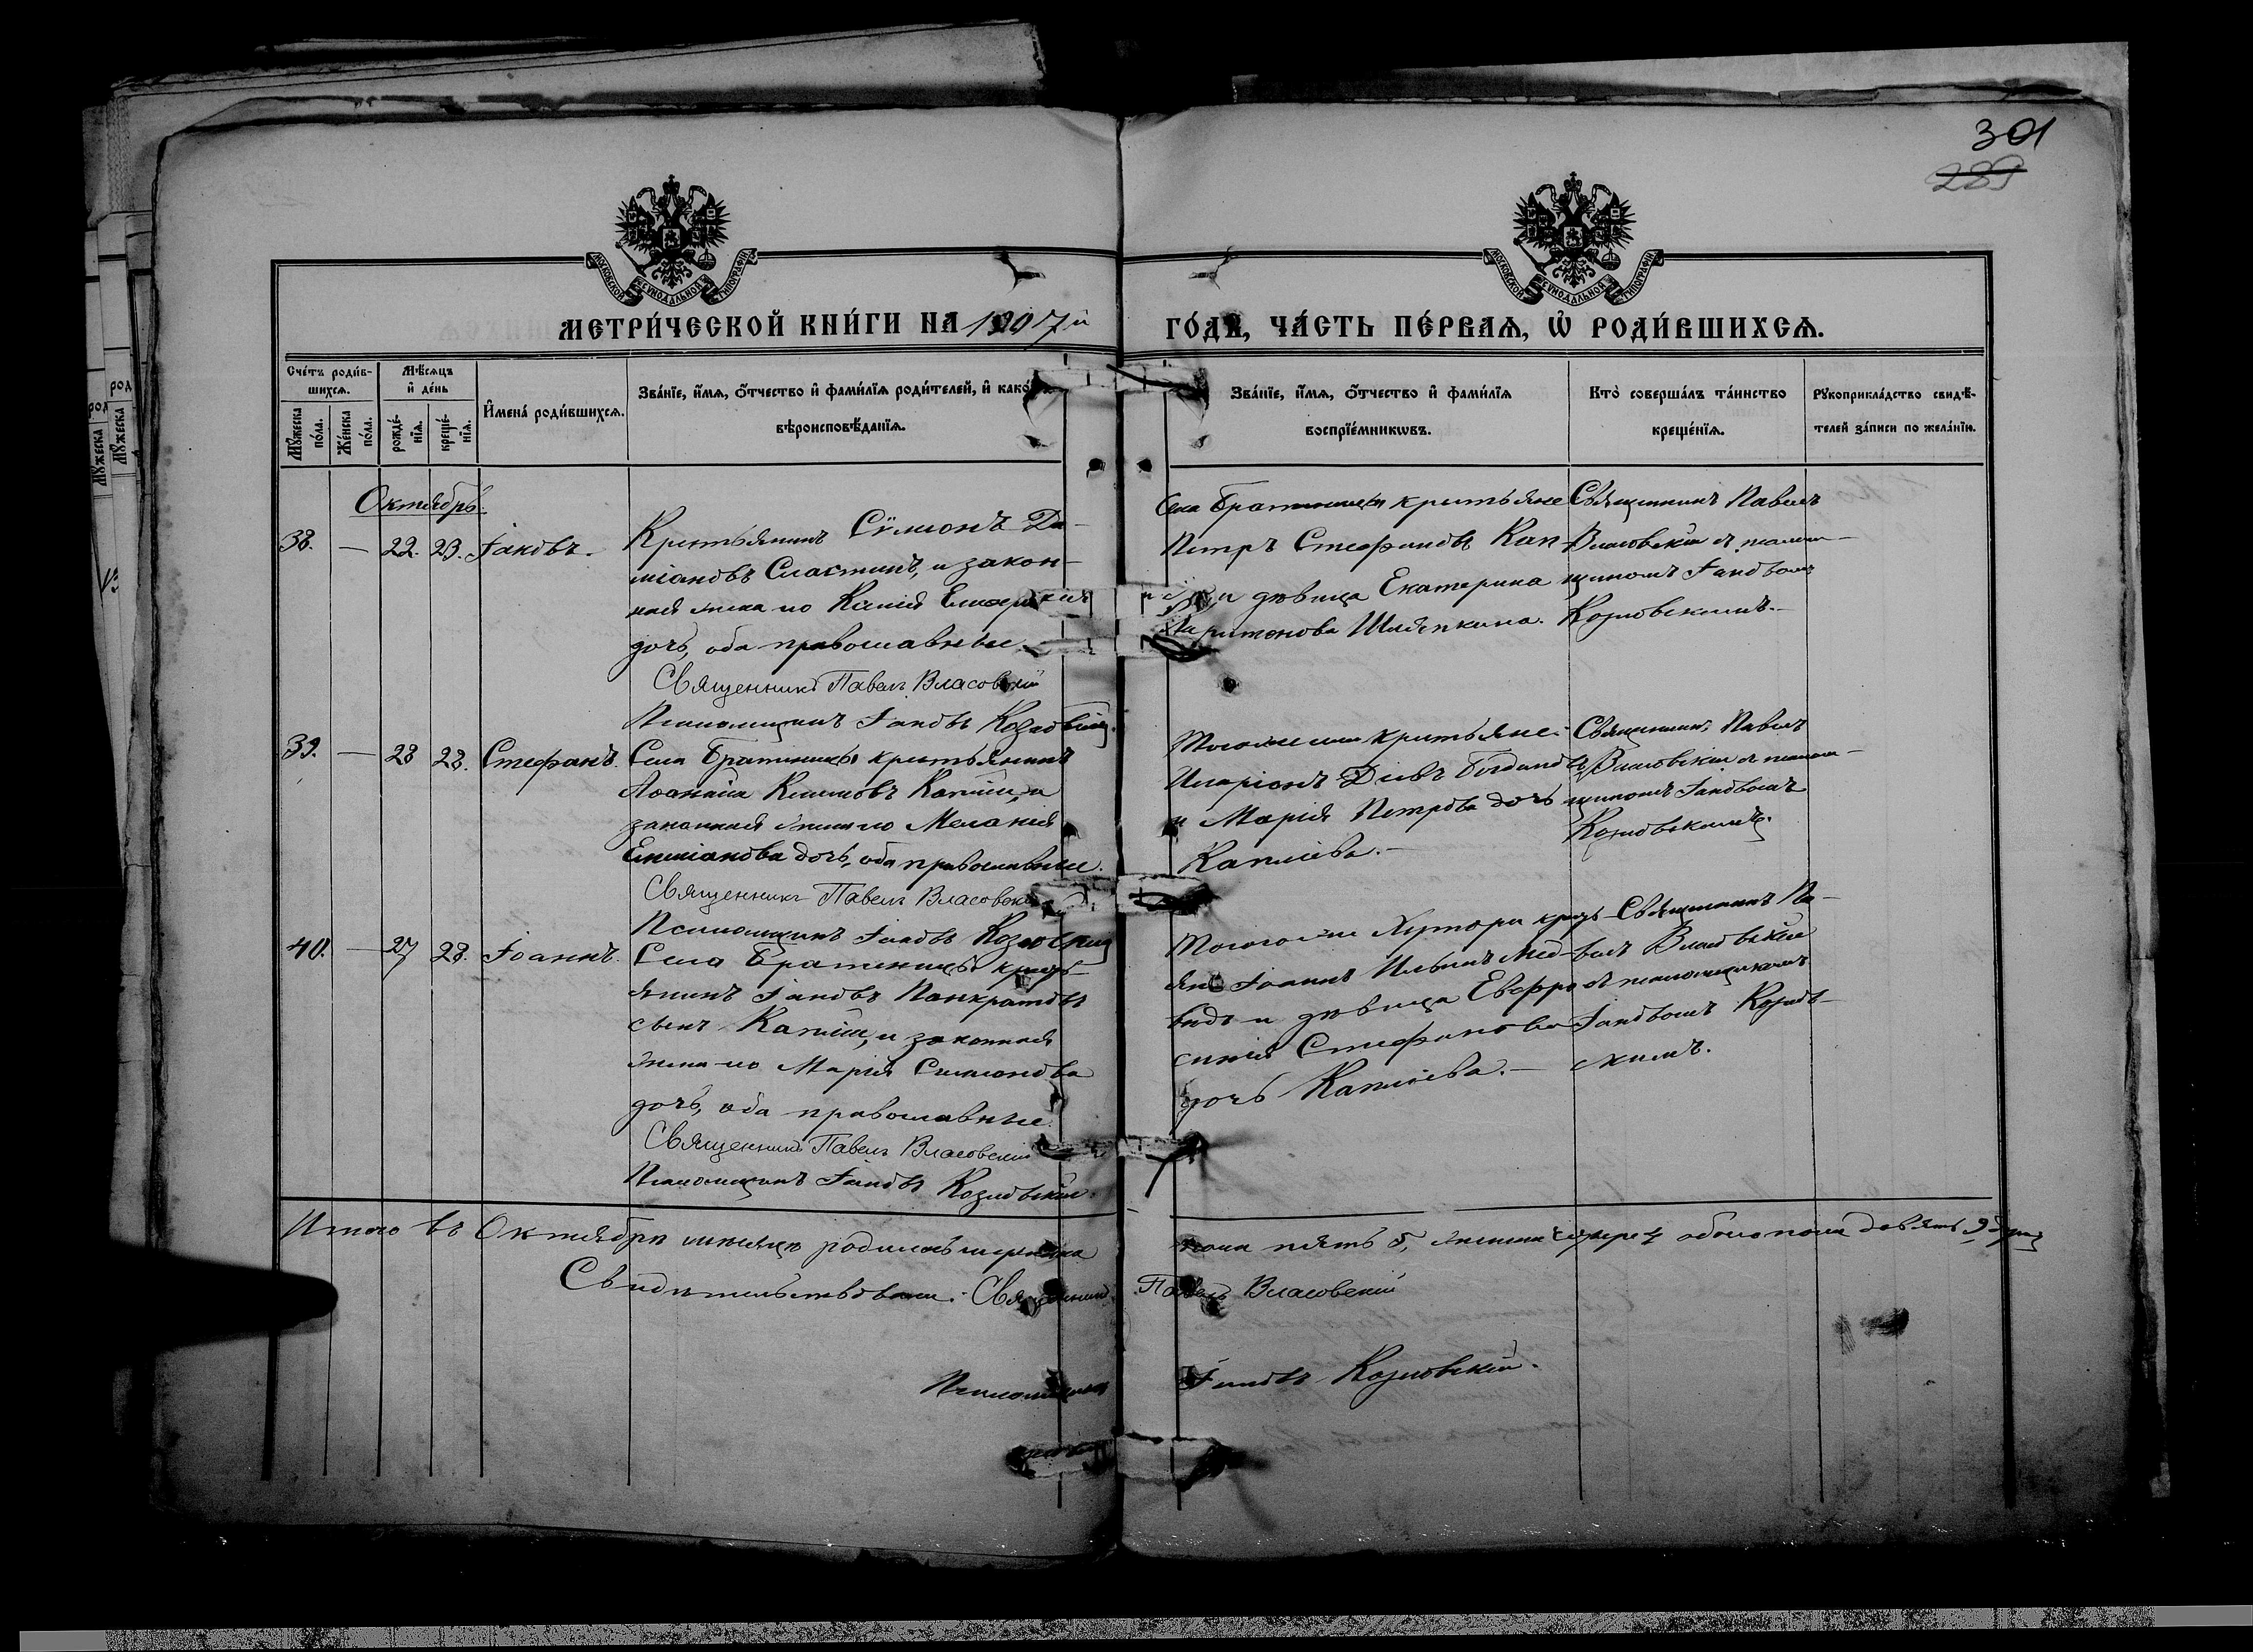 301
289
МЕТРИ́ЧЕСКОЙ КНИ́ГИ НА 1907 й
ГО́ДЪ, ЧА́СТЬ ПЕ́РВАѦ, Ѡ҆ РОДИ́ВШИХСѦ.
Сче́тъ роди́в-
шихсѧ.
Мѣ́сѧцъ
и҆ де́нь
Мꙋ́жеска
по́ла.
Же́нска
по́ла.
рожде́-
нїѧ.
креще́-
нїѧ.
И҆мена̀ роди́вшихсѧ.
Зва́нїе, и҆́мѧ, ѻ҆́тчество и҆ фами́лїѧ роди́телей, и҆ како́
вѣроисповѣ́данїѧ.
Зва́нїе, и҆́мѧ, ѻ҆́тчество и҆ фами́лїѧ
воспрїе́мникѡвъ.
Кто̀ соверша́лъ та́инство
креще́нїѧ.
Рꙋкоприкла́дство свидѣ́-
телей за́писи по жела́нїю.
Октябрь.
38. — 22. 23. Іаковъ.
Крестьянинъ Сѵмеонъ Да-
міановъ Сластинъ, и закон-
ная жена его
дочь, оба православные.
Священникъ Павелъ Власовскій
Псаломщикъ Іаковъ Козловскій.
Села Братеницы крестьяне
Петръ Стефановъ Кап-
и дѣвица Екатерина
Харитонова Шляпкина.
Священникъ Павелъ
Власовскій съ псалом-
щикомъ Іаковомъ
Козловскимъ.
39. — 28 28. Стефанъ.
Села Братеницы крестьянинъ
Аѳанасій Климовъ и
законная жена его Меланія
Емиліанова дочь, оба православные.
Священникъ Павелъ Власовскій
Псаломщикъ Іаковъ Козловскій
Того же села крестьяне:
Иларіонъ
и Марія Петрова дочь
Каплiева.—
Священникъ Павелъ
Власовскій съ псалом-
щикомъ Іаковомъ
Козловскимъ.
40. — 27 28. Іоаннъ.
Села Братеницы кресть-
янинъ Іаковъ Панкратовъ
сынъ и законная
жена его Марія Симеонова
дочь, оба православные.
Священникъ Павелъ Власовскій
Псаломщикъ Іаковъ Козловскій.
хутора кресть-
яне Іоаннъ Ильинъ Мед-
вѣдь и дѣвица Евфро-
синія Стефанова
дочь Каплiева.—
Священникъ Па-
велъ Власовскій
съ псаломщикомъ
Іаковомъ Козлов-
скимъ.
Итого въ Октябрѣ мѣсяцѣ родилось мужеска
пола пять 5, женска четыре 4 обоего пола девять 9 душъ
Свидѣтельствовали: Священникъ
Павелъ Власовскій
Псаломщикъ
Іаковъ Козловскій.